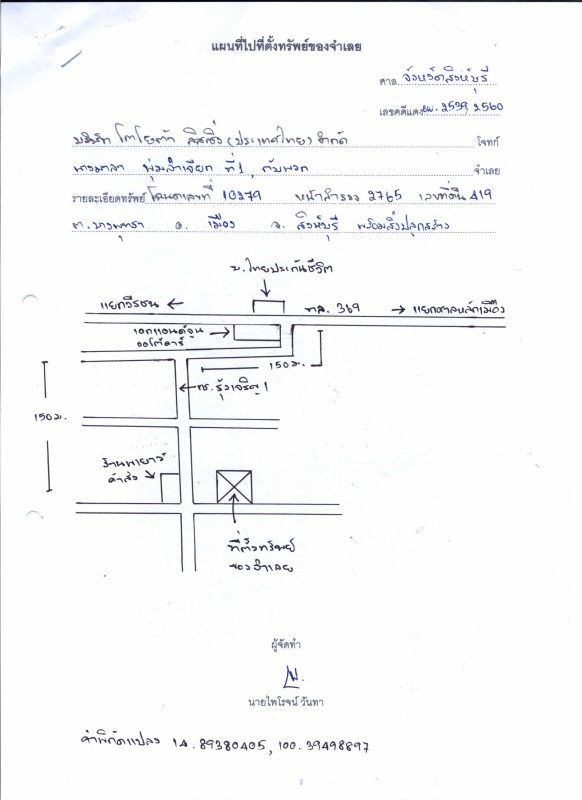 แผนที่ไปที่ตั้งทรัพย์ของจำเลย
ศาล จังหวัดสิงห์บุรี
เลขคดีแดง ผบ. 2539, 2560
บริษัท โตโยต้า ลีสซิ่ง (ประเทศไทย) จำกัด โจทก์
พุ่มสำเจียก ที่ 1, กับพวก จำเลย
รายละเอียดทรัพย์ โฉนดเลขที่ 10279 หน้าสำรวจ 2765 เลขที่ดิน 419
ต. บางพุทรา อ. เมือง จ. สิงห์บุรี พร้อมสิ่งปลูกสร้าง
บ. ไทยประกันชีวิต
แยกวีรชน
ทล. 369
แยกศาลหลักเมือง
เอกแอนด์จูน
ออโต้คาร์
150 ม.
ซ. รุ้งเจริญ 1
150 ม.
ร้านพเยาว์
ค้าส่ง
ที่ตั้งทรัพย์
ของจำเลย
ผู้จัดทำ
นายไพโรจน์ วันทา
ค่าพิกัดแปลง 14.89380405, 100.39498897